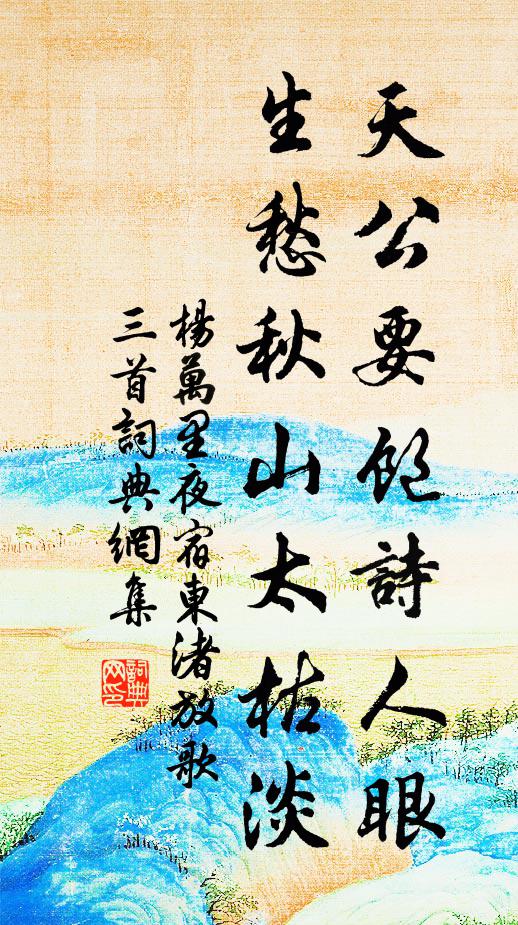 天公要飽詩人眼
生愁秋山太枯淡
楊萬里夜宿東渚放歌
三首詞典網集
詞典网印